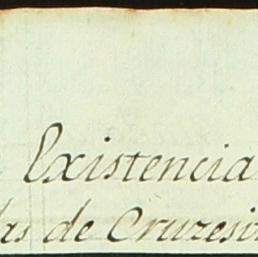 Existencia
las de Cruzesi